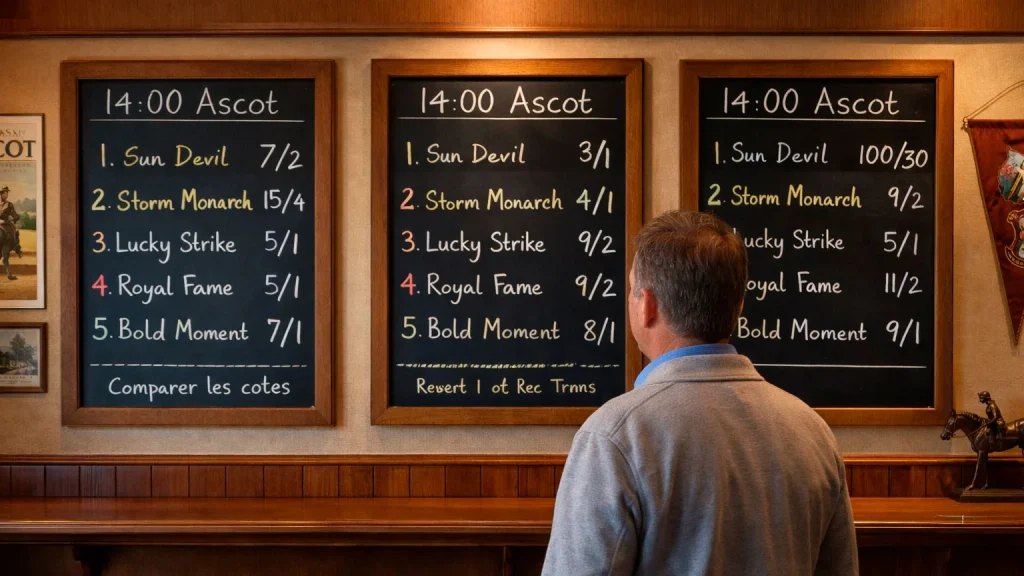 14:00 Ascot
1. Sun Devil 7/2
2. Storm Monarch 15/4
3. Lucky Strike 5/1
4. Royal Fame 5/1
5. Bold Moment 7/1
Comparer les cotes
14:00 Ascot
1. Sun Devil 3/1
2. Storm Monarch 4/1
3. Lucky Strike 9/2
4. Royal Fame 9/2
5. Bold Moment 8/1
14:00 Ascot
1. Sun Devil 100/30
2. Storm Monarch 9/2
ucky Strike 5/1
oyal Fame 11/2
Bold Moment 9/1
COT